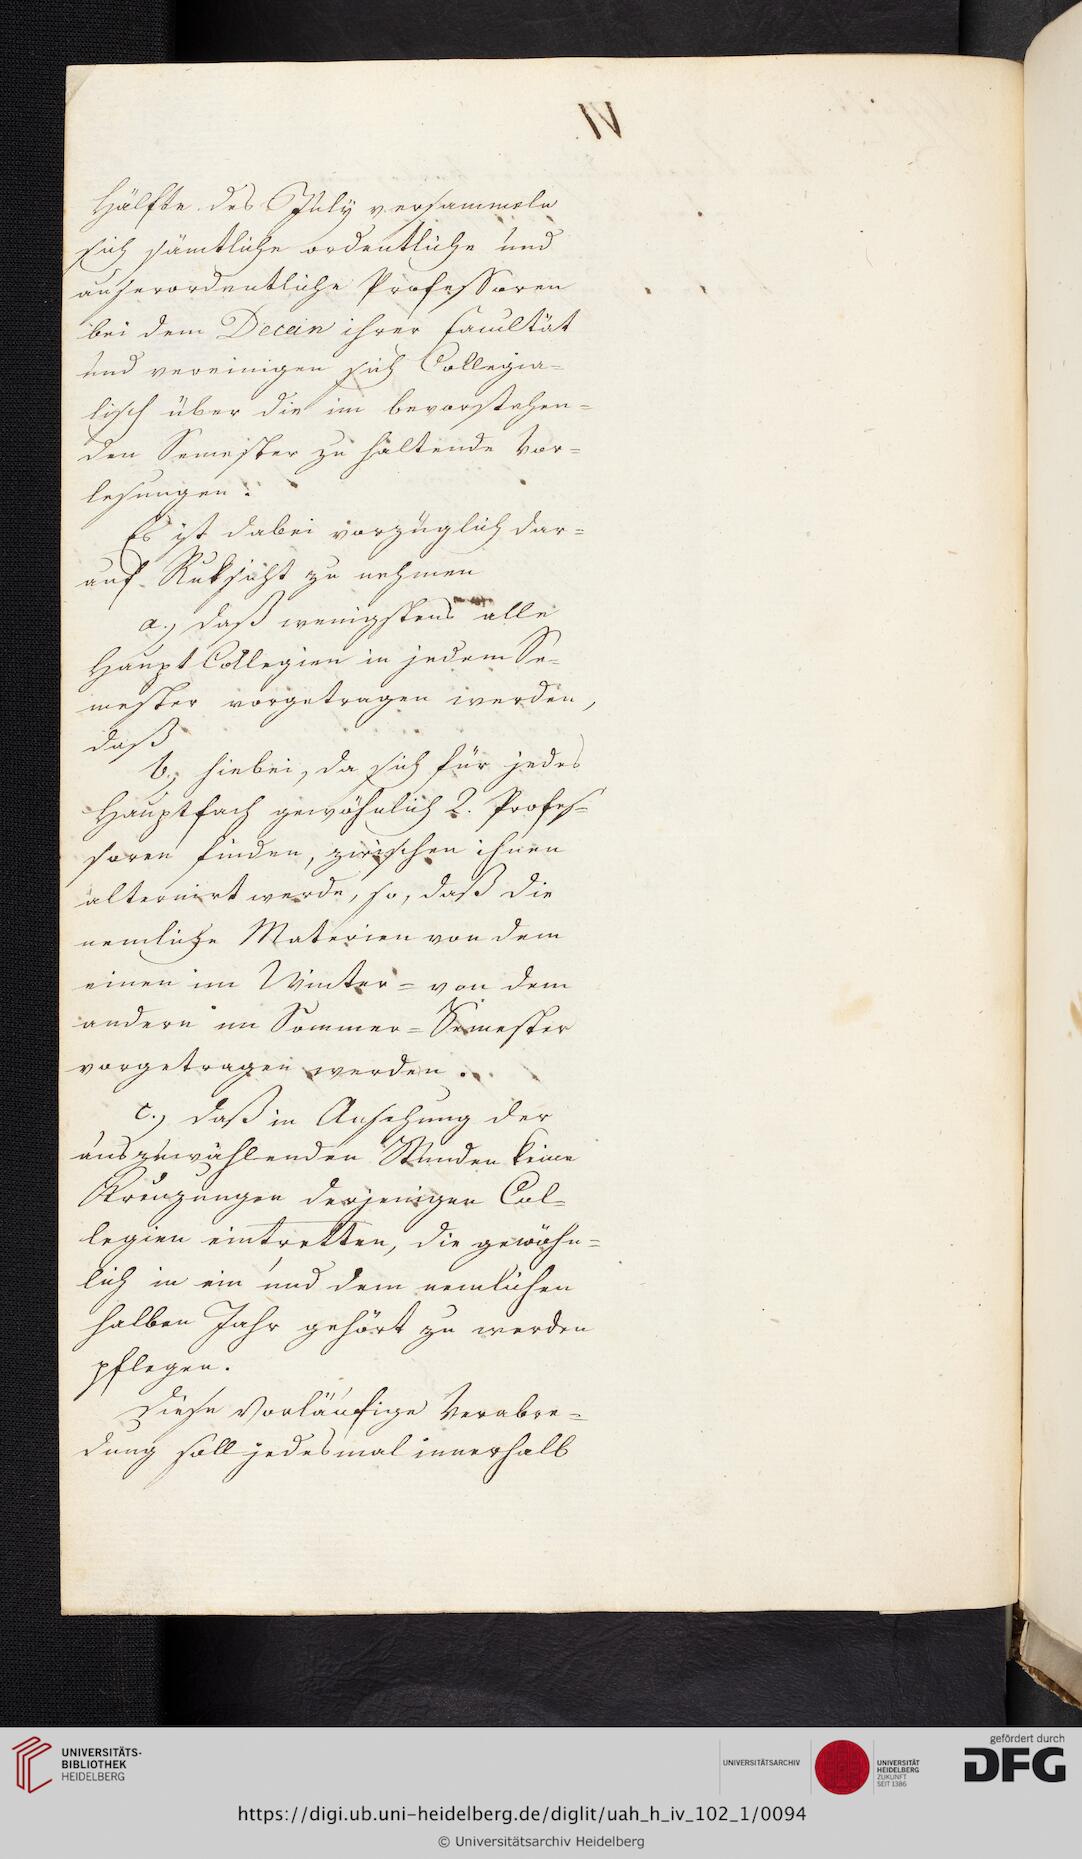 VI
Hälfte des July versammeln
sich sämtliche ordentliche und
auserordentliche Professoren
bei dem Decan ihrer Facultät
und vereinigen sich Collegia=
lisch über die im bevorstehen=
den Semester zu haltende Vor=
lesungen.
Es ist dabei vorzüglich dar=
auf Ruksicht zu nehmen
a., daß wenigstens alle
Haupt Collegien in jedem Se=
mester vorgetragen werden,
daß
b., hiebei, da sich für jedes
Hauptfach gewöhnlich 2. Profes=
soren finden, zwischen ihnen
alternirt werde, so, daß die
nemliche Materien von dem
einen im Winter= von dem
andern im Sommer=Semester
vorgetragen werden.
c., daß in Ansehung der
auszuwählenden Stunden keine
Kreuzungen derjenigen Col=
legien eintretten, die gewöhn=
lich in ein und dem nemlichen
halben Jahr gehört zu werden
pflegen.
Diese vorläufige Verabre=
dung soll jedesmal innerhalb
UNIVERSITÄTS-
BIBLIOTHEK
HEIDELBERG
UNIVERSITÄTSARCHIV
UNIVERSITÄT
HEIDELBERG
ZUKUNFT
SEIT 1386
gefördert durch
DFG
https://digi.ub.uni-heidelberg.de/diglit/uah_h_iv_102_1/0094
© Universitätsarchiv Heidelberg